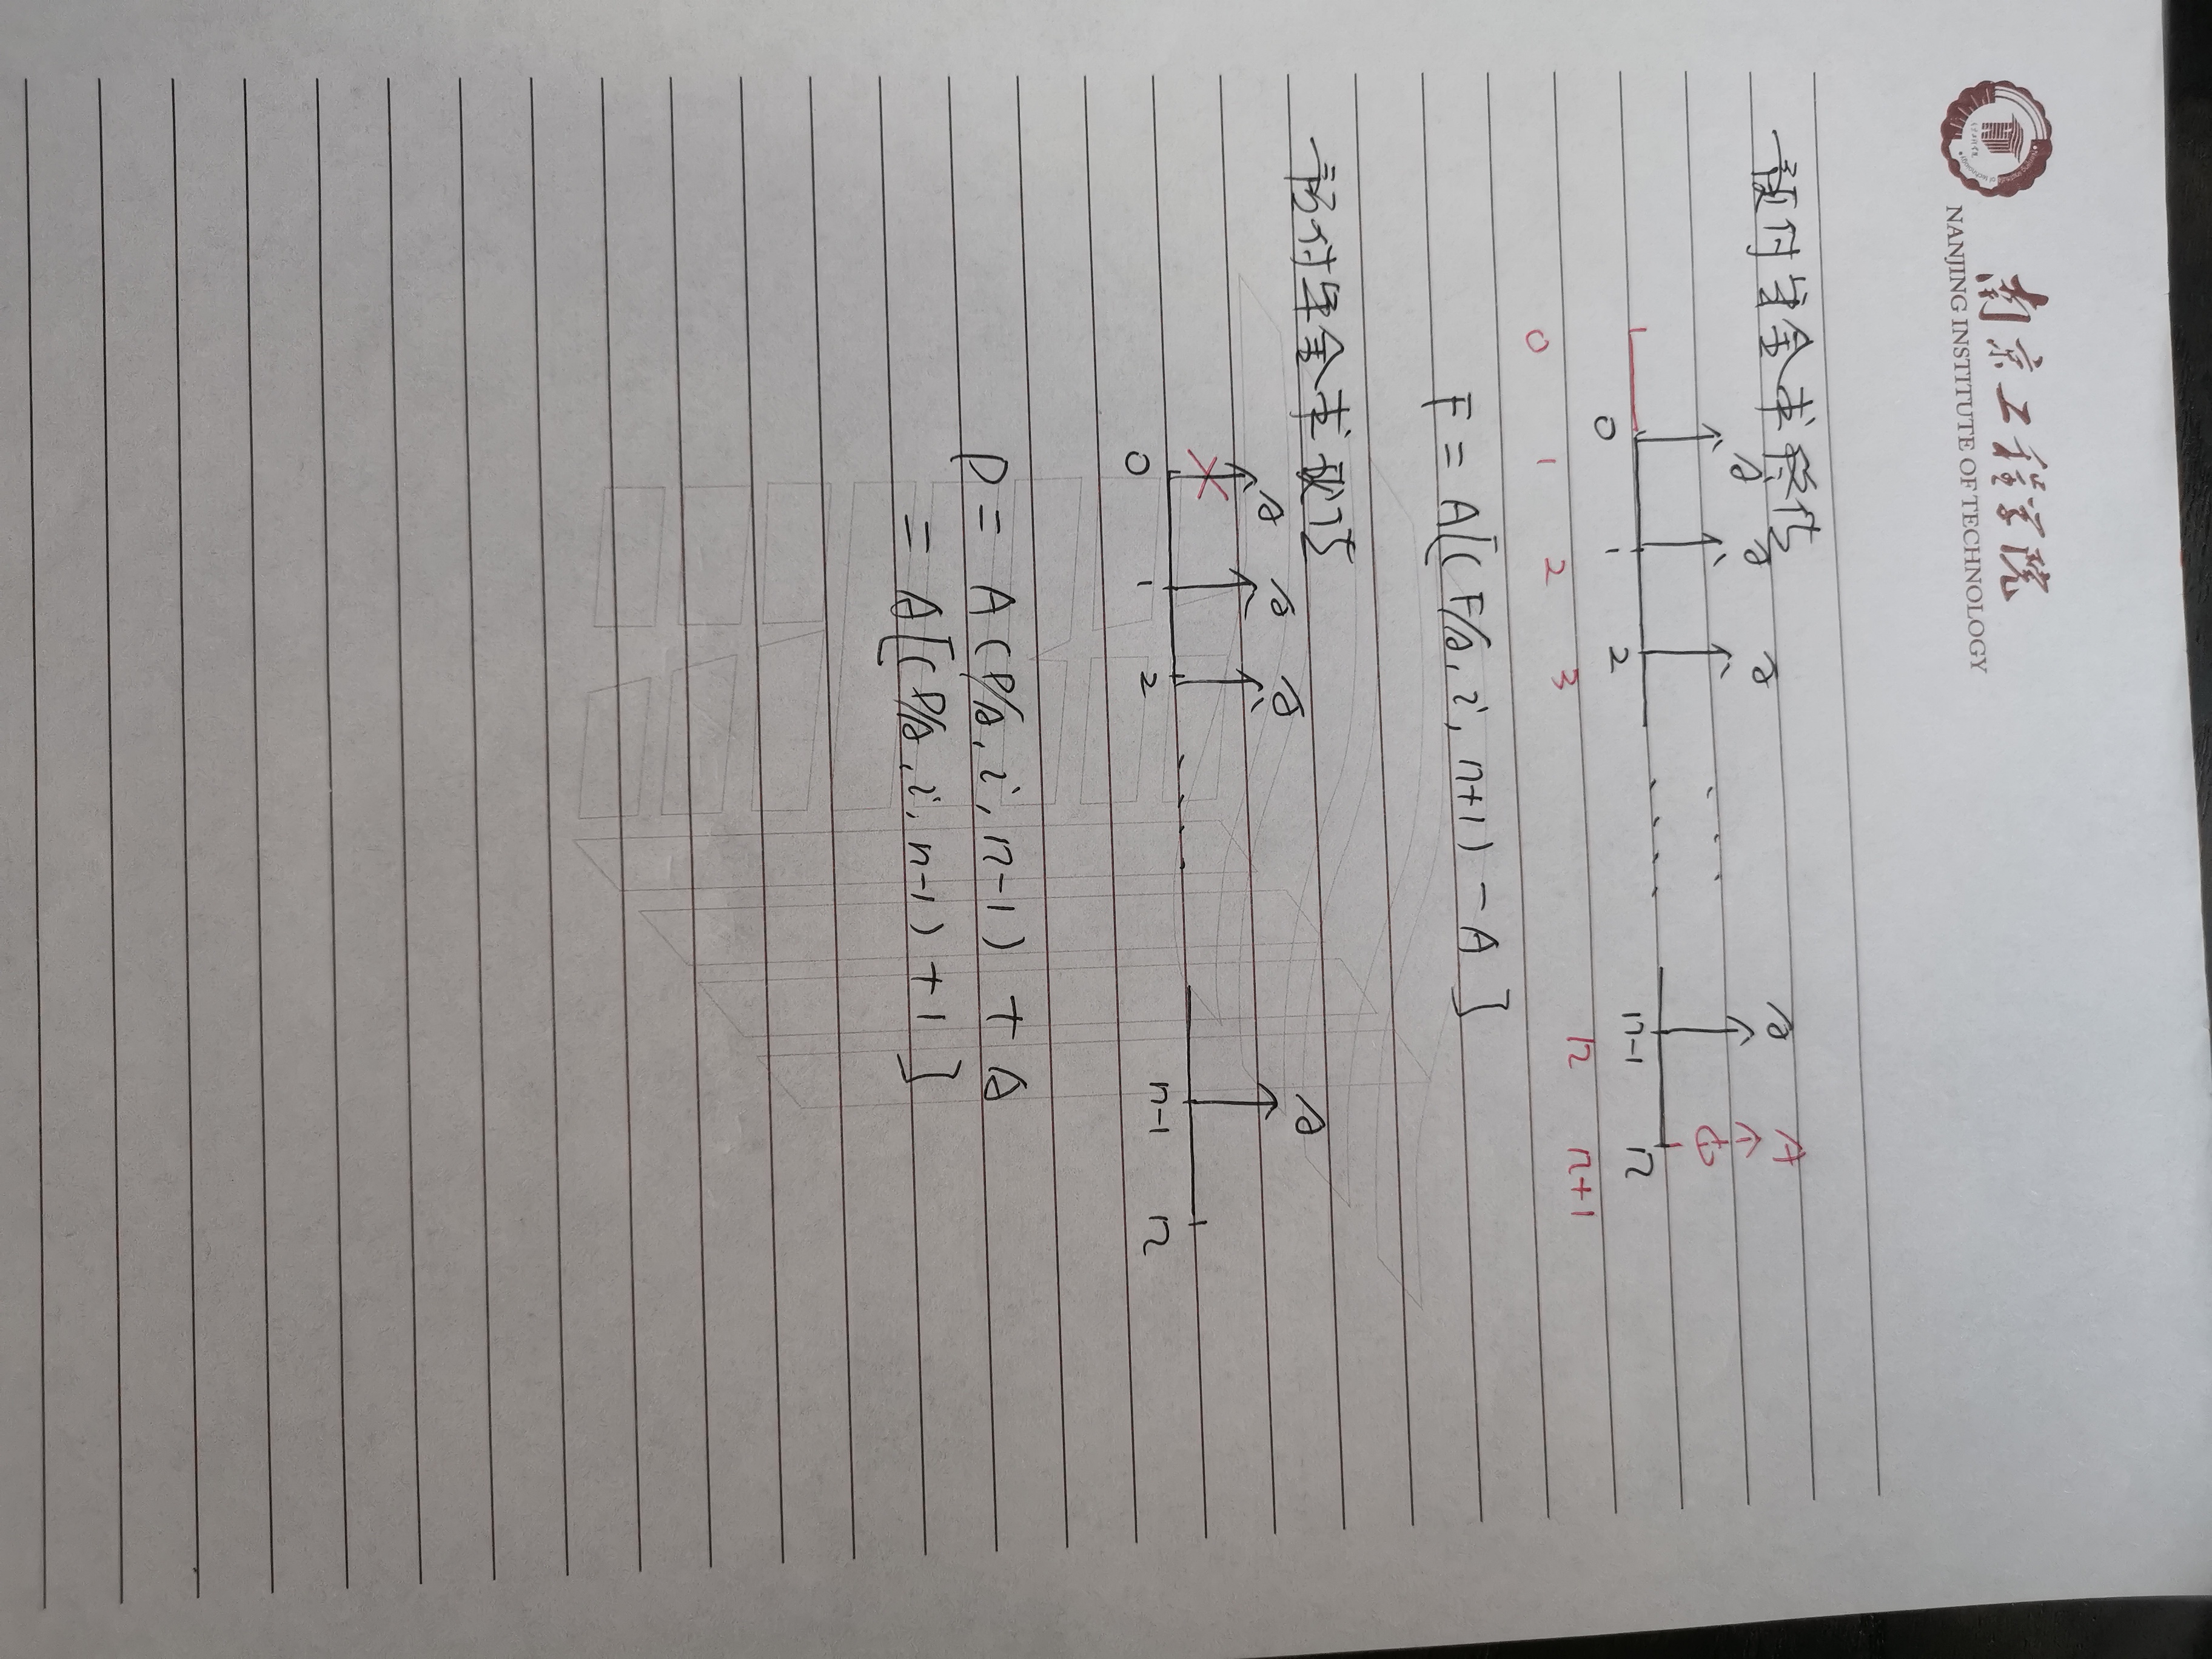 南京工程学院
NANJING INSTITUTE OF TECHNOLOGY
预付年金求终值
A A A A A
0 1 2 n-1 n
0 1 2 3 n n+1
F = A[(F/A, i, n+1) - A ]
预付年金求现值
A A A A
0 1 2 n-1 n
P = A(P/A, i, n-1) + A
= A[(P/A, i, n-1) + 1 ]